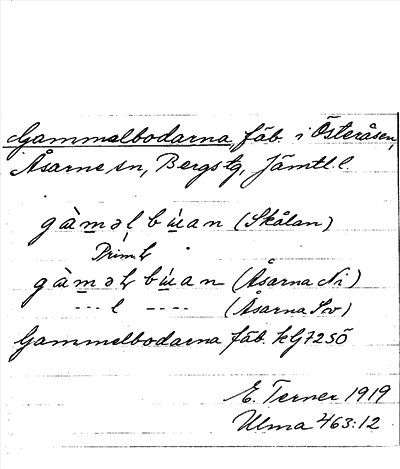 Gammelbodarna, fäb. i Österåsen,
Åsarne sn, Bergs tg, Jämtl. l
gàmǝl bu̇́an (Skålan)
Prim.
gàmǝɫ bu̇́an (Åsarna Ni)
--- l ---- (Åsarna Sv)
Gammelbodarna fäb. kG72SÖ
E. Terner 1919
Ulma 463:12